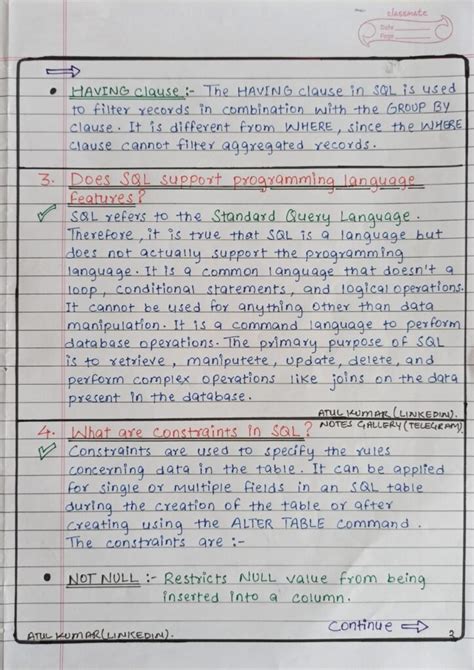 classmate
Date
Page
HAVING clause :- The HAVING clause in SQL is used
to filter records in combination with the GROUP BY
clause. It is different from WHERE, since the WHERE
clause cannot filter aggregated records.
3. Does SQL support programming language
features?
SQL refers to the Standard Query Language.
Therefore, it is true that SQL is a language but
does not actually support the programming
language. It is a common language that doesn't a
loop, conditional statements, and logical operations.
It cannot be used for anything other than data
manipulation. It is a command language to perform
database operations. The primary purpose of SQL
is to retrieve, maniputete, update, delete, and
perform complex operations like joins on the data
present in the database.
ATUL KUMAR (LINKEDIN).
NOTES GALLERY (TELEGRAM)
4. What are constraints in SQL?
Constraints are used to specify the rules
concerning data in the table. It can be applied
for single or multiple fields in an SQL table
during the creation of the table or after
creating using the ALTER TABLE command.
The constraints are :-
NOT NULL :- Restricts NULL value from being
inserted into a column.
Continue
ATUL KUMAR (LINKEDIN).
3